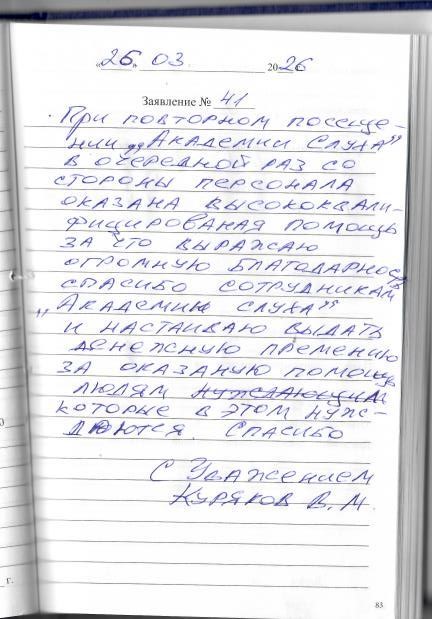 „26" 03 2026
Заявление № 41
При повторном посеще-
нии „Академии Слуха"
в очередной раз со
стороны персонала
оказана высококвали-
фицированая помощь
за что выражаю
огромную благодарность
спасибо сотрудникам
„Академии слуха"
и настаиваю выдать
денежную премению
за оказаную помощь
людям нуждающим
которые в этом нуж-
даются. Спасибо
С Уважением
Куряков В. М.
83
г.